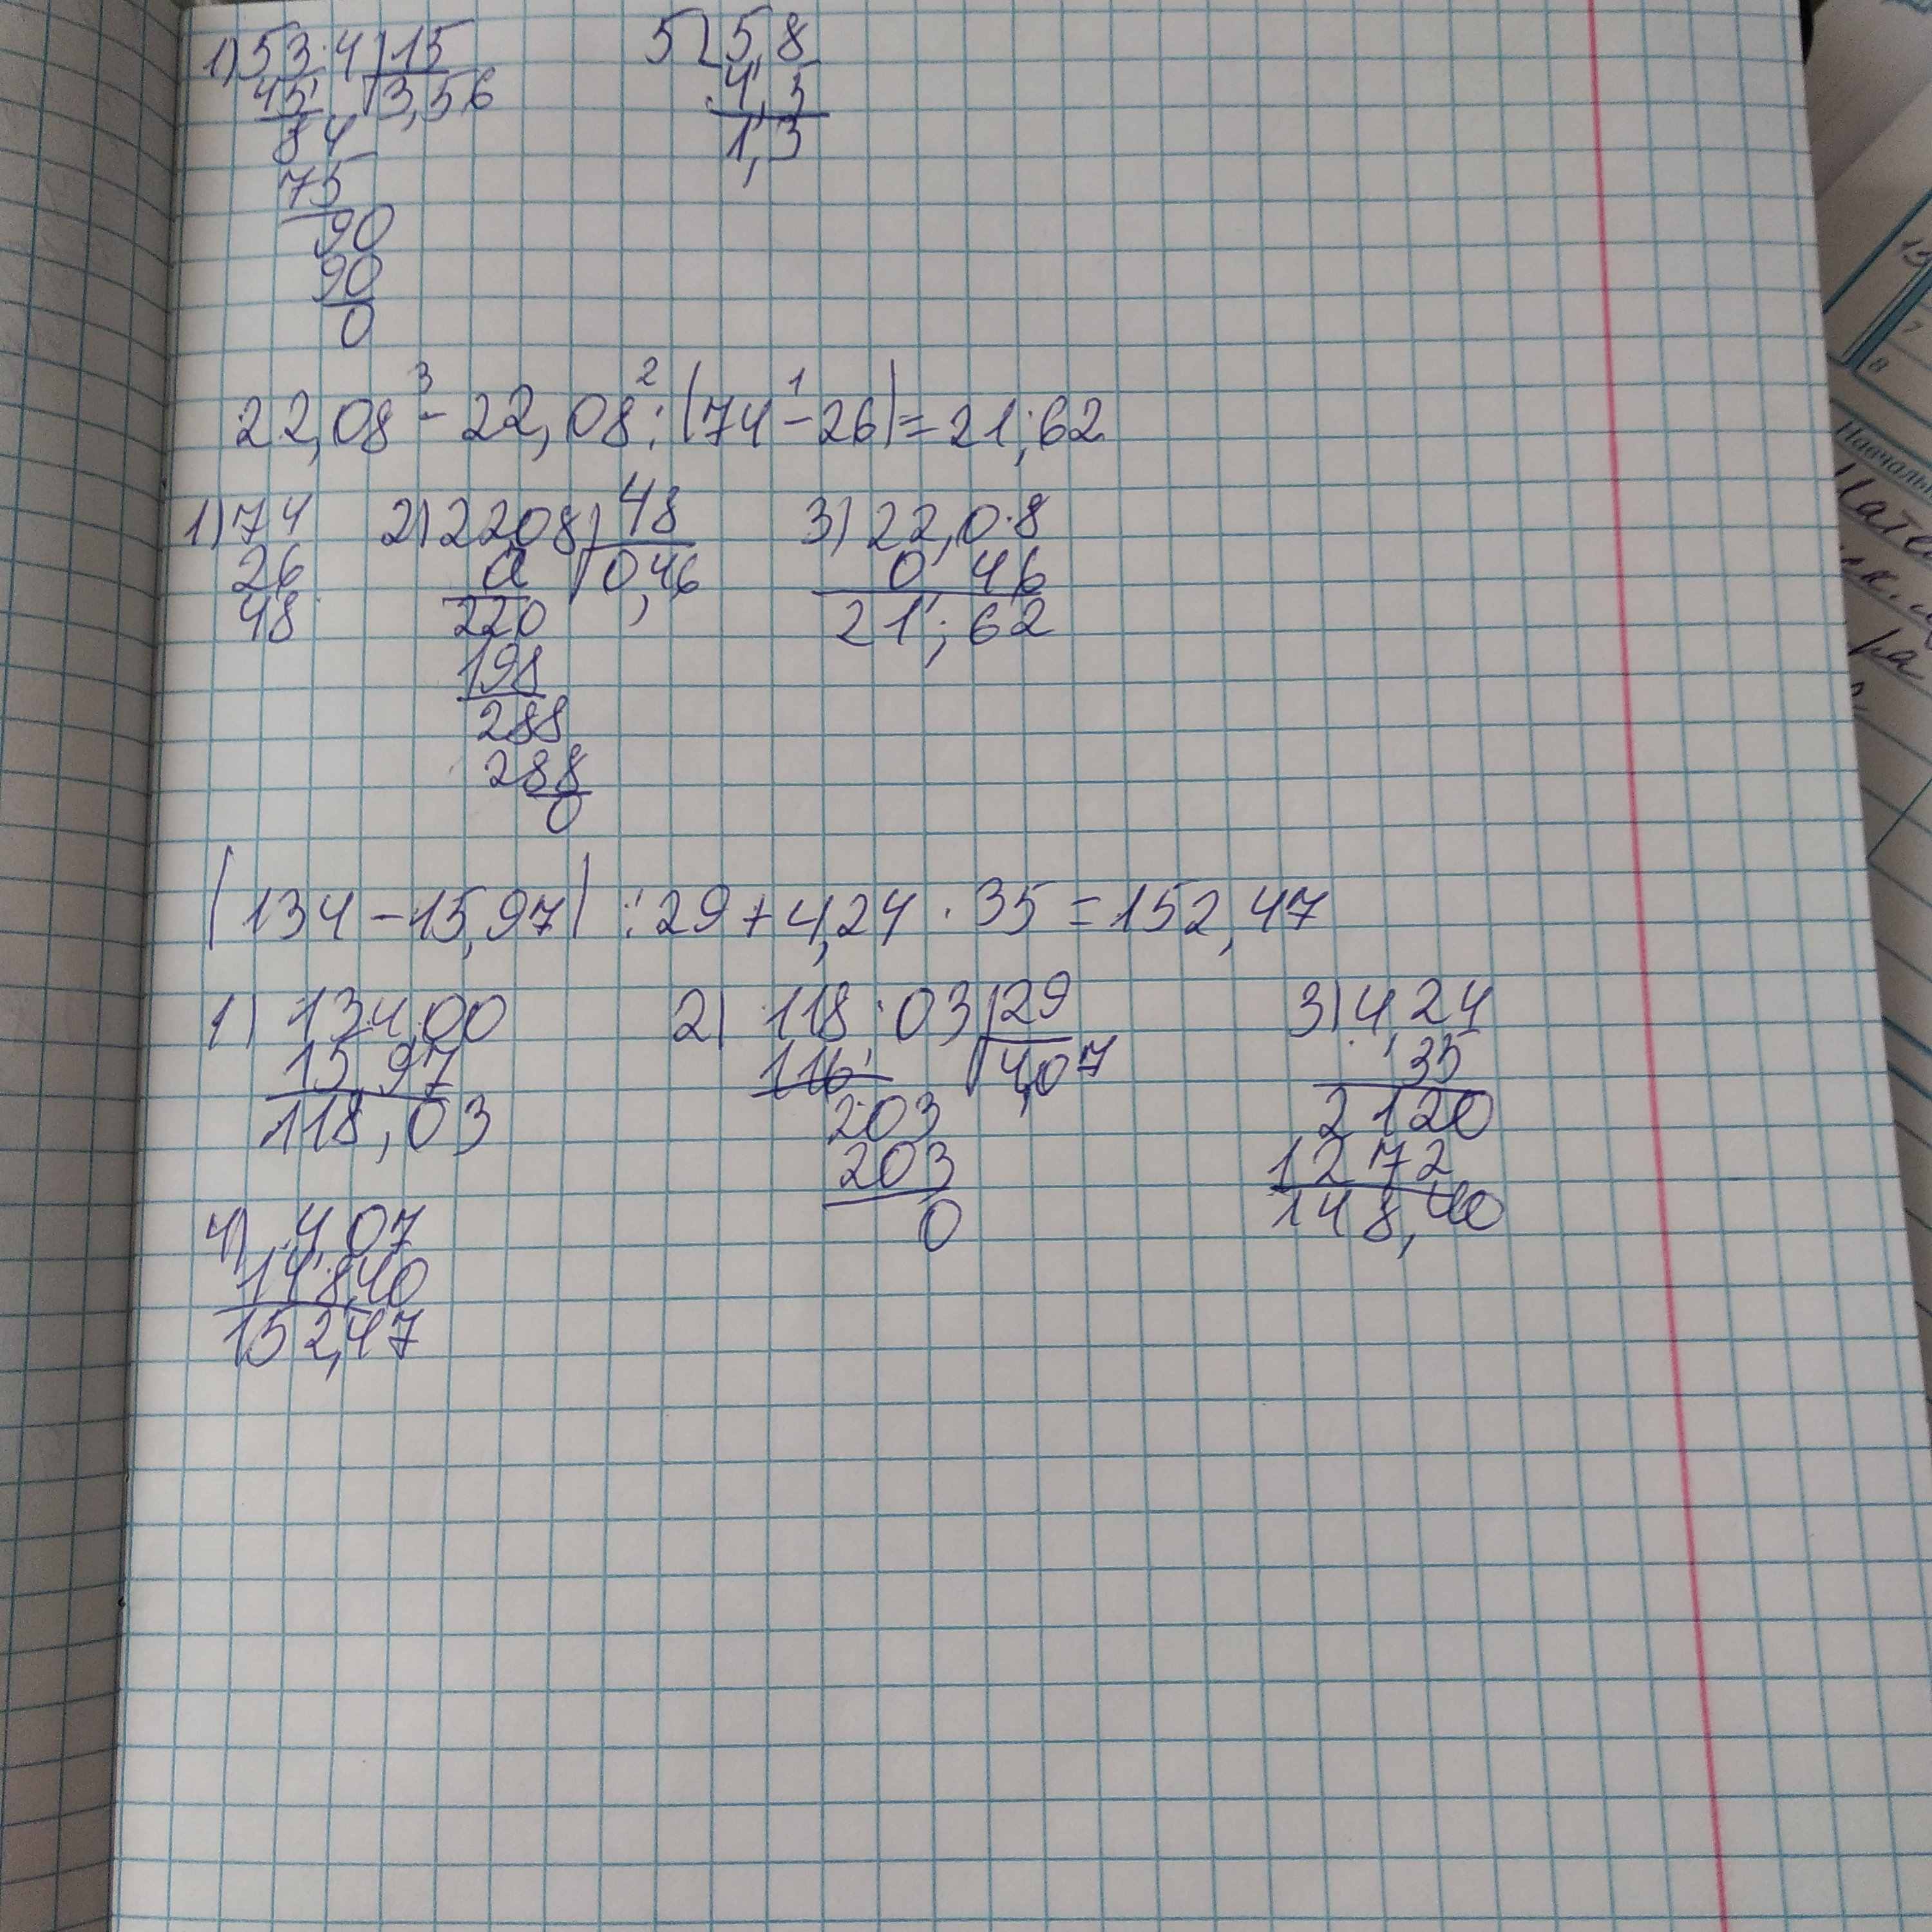 1) 53,4 | 15 5 | 5,8
45 | 3,56 4,5
84 1,3
75
90
90
0
3 2 1
22,08 - 22,08 : (74 - 26) = 21,62
1) 74 2) 2208 | 48 3) 22,08
26 0 | 0,46 0,46
48 220 21,62
198
288
288
0
(134 - 15,97) : 29 + 4,24 · 35 = 152,47
1) 134,00 2) 118,03 | 29 3) 4,24
15,97 116 | 4,07 35
118,03 203 2120
203 1272
0 148,40
4) 4,07
148,40
152,47
Навчальн